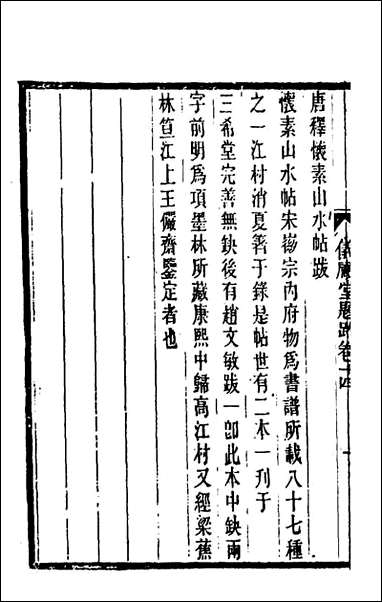 唐釋懷素山水帖跋
懷素山水帖宋徽宗內府物爲書譜所載八十七種
之一江村消夏著于錄是帖世有二本一刋于
三希堂完善無缺後有趙文敏跋一卽此本中缺兩
字前明爲項墨林所藏康熙中歸高江村又經梁蕉
林笪江上王儼齋鑒定者也
儀顧堂題跋卷十四